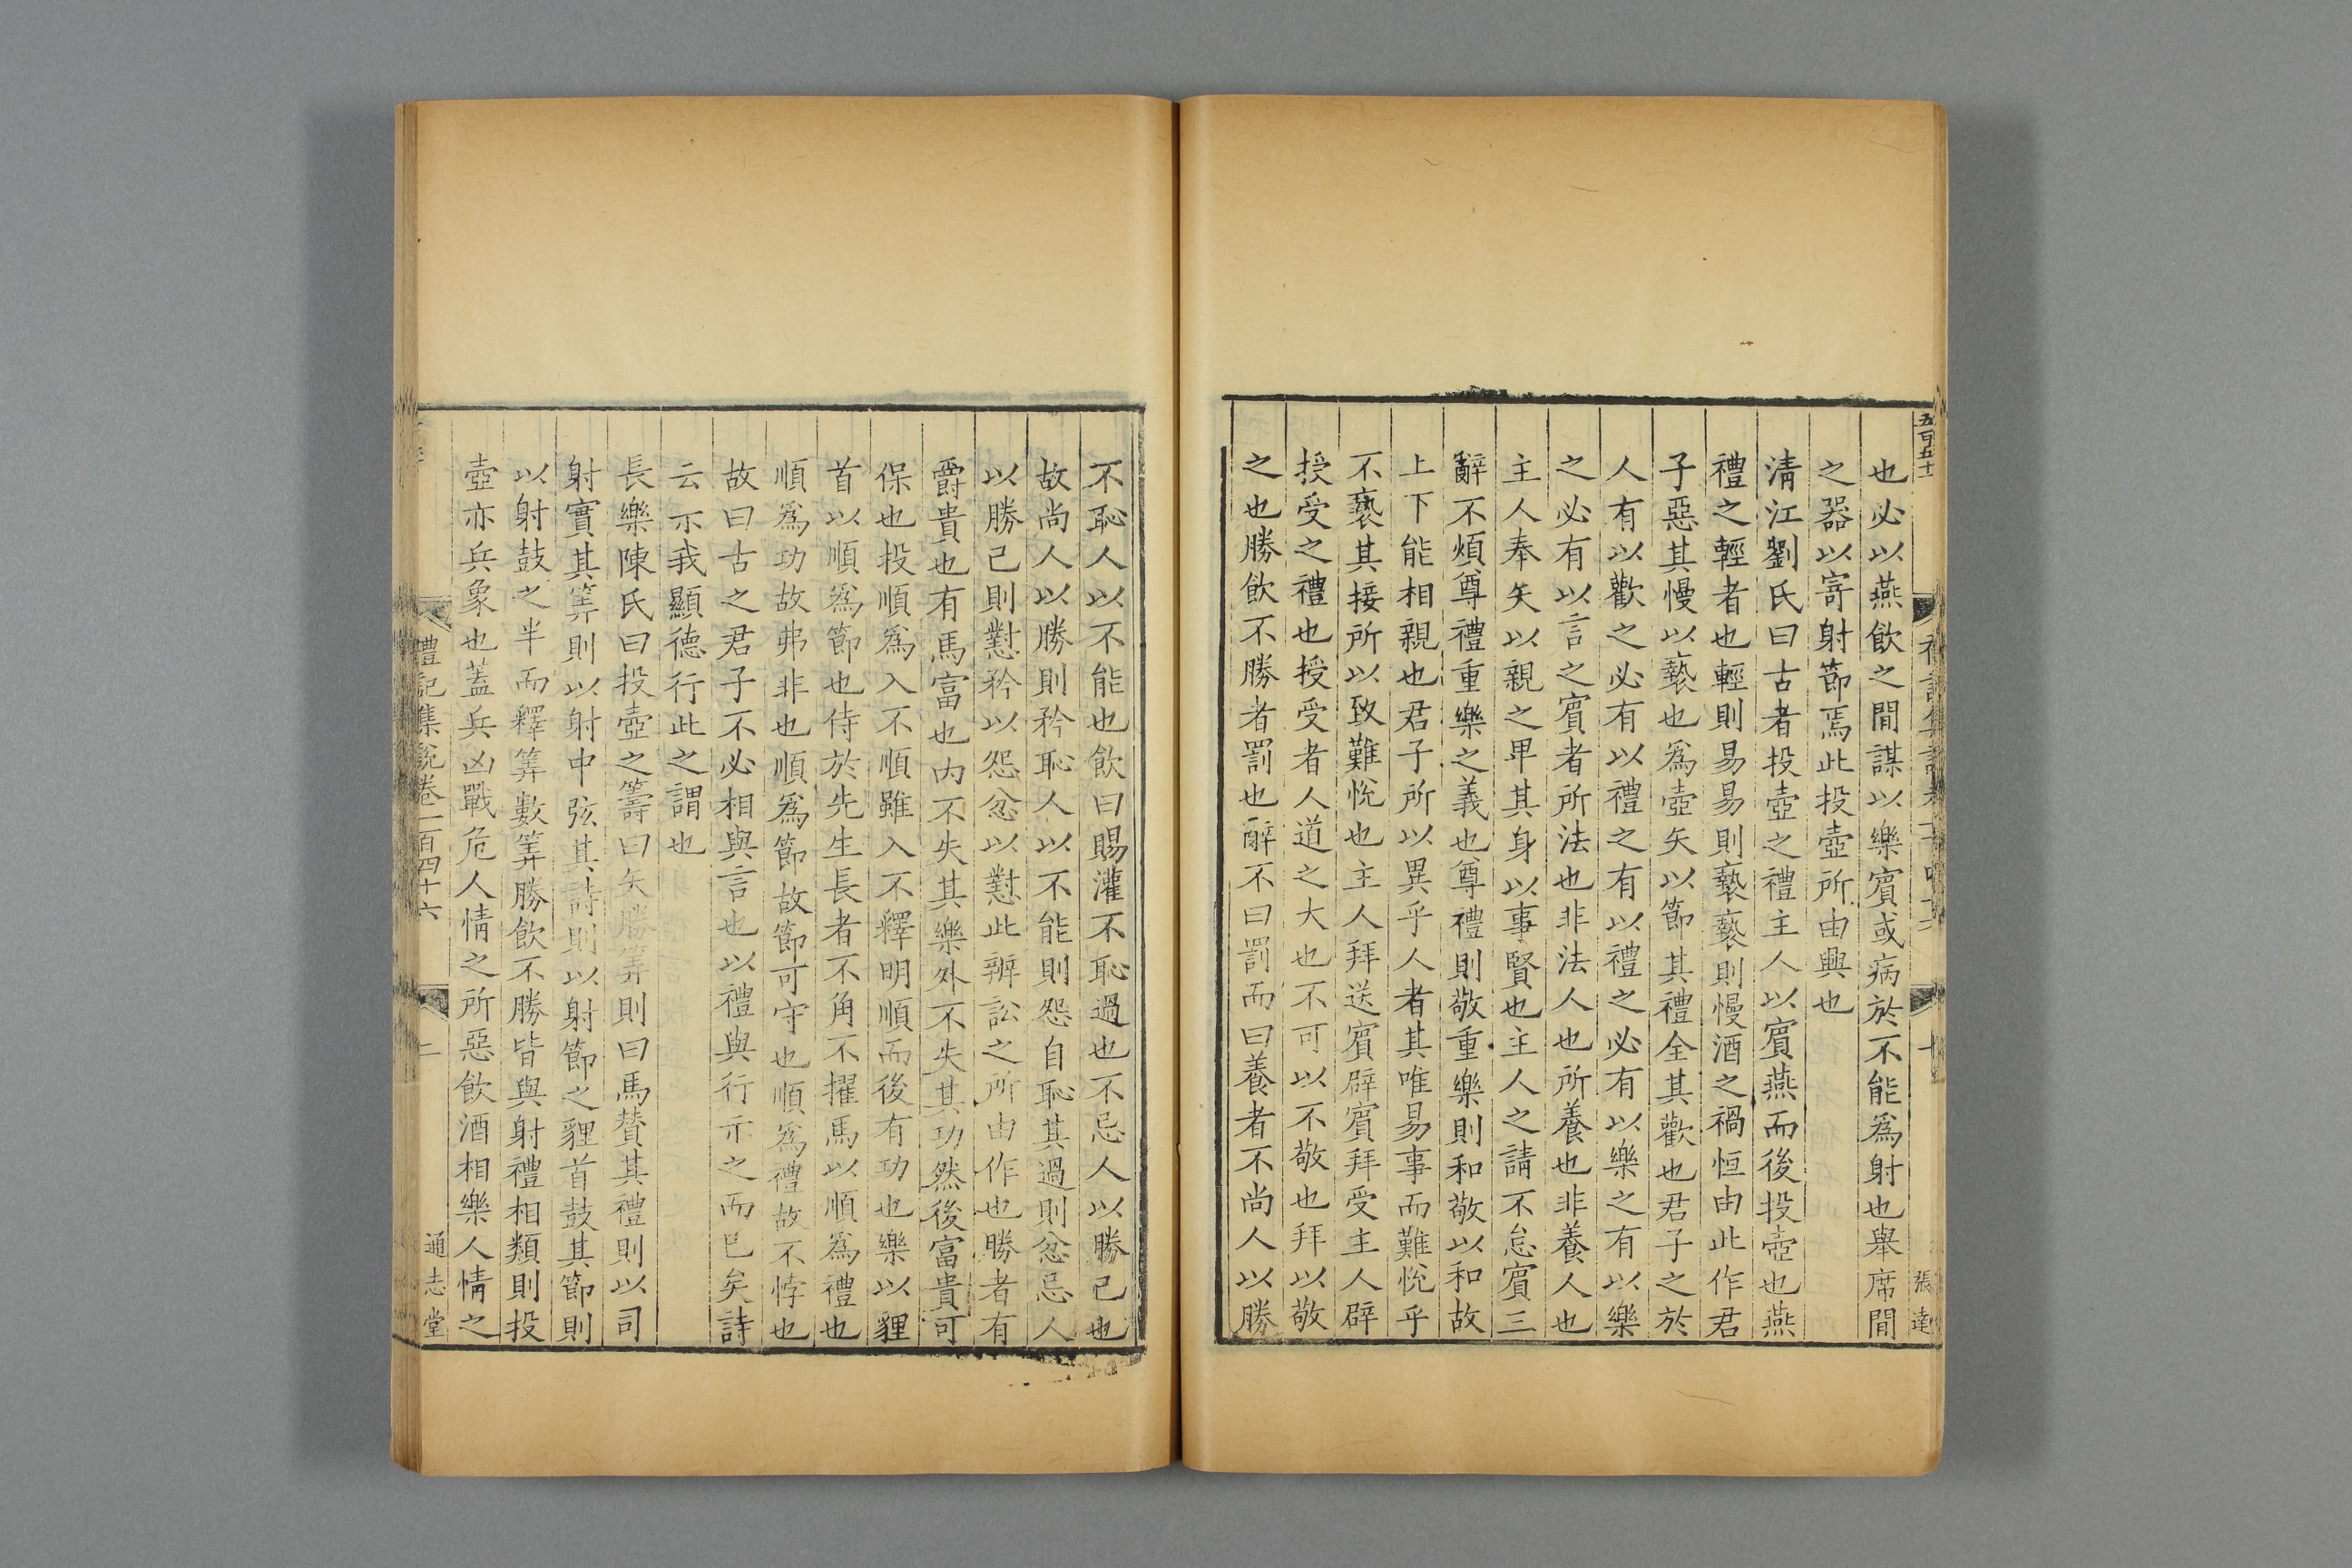 五百五十
張達
也必以燕飲之間謀以樂賓或病於不能爲射也舉席間
之器以寄射節焉此投壺所由興也
清江劉氏曰古者投壺之禮主人以賓燕而後投壺也燕
禮之輕者也輕則易易則褻褻則慢酒之禍恒由此作君
子惡其慢以褻也爲壺矢以節其禮全其歡也君子之於
人有以歡之必有以禮之有以禮之必有以樂之有以樂
之必有以言之賓者所法也非法人也所養也非養人也
主人奉矢以親之卑其身以事賢也主人之請不怠賓三
辭不煩尊禮重樂之義也尊禮則敬重樂則和敬以和故
上下能相親也君子所以異乎人者其唯易事而難悅乎
不褻其接所以致難悅也主人拜送賓辟賓拜受主人辟
授受之禮也授受者人道之大也不可以不敬也拜以敬
之也勝飲不勝者罰也辭不曰罰而曰養者不尚人以勝
不恥人以不能也飲曰賜灌不恥過也不忌人以勝己也
故尚人以勝則矜恥人以不能則怨自恥其過則忿忌人
以勝己則懟矜以怨忿以懟此辨訟之所由作也勝者有
爵貴也有馬富也內不失其樂外不失其功然後富貴可
保也投順爲入不順雖入不釋明順而後有功也樂以貍
首以順爲節也侍於先生長者不角不擢馬以順爲禮也
順爲功故弗非也順爲節故節可守也順爲禮故不悖也
故曰古之君子不必相與言也以禮與行示之而已矣詩
云示我顯德行此之謂也
長樂陳氏曰投壺之籌曰矢勝筭則曰馬贊其禮則以司
射實其筭則以射中弦其詩則以射節之貍首鼓其節則
以射鼓之半而釋筭數筭勝飲不勝皆與射禮相類則投
壺亦兵象也蓋兵凶戰危人情之所惡飲酒相樂人情之
禮記集說卷一百四十六
二
通志堂